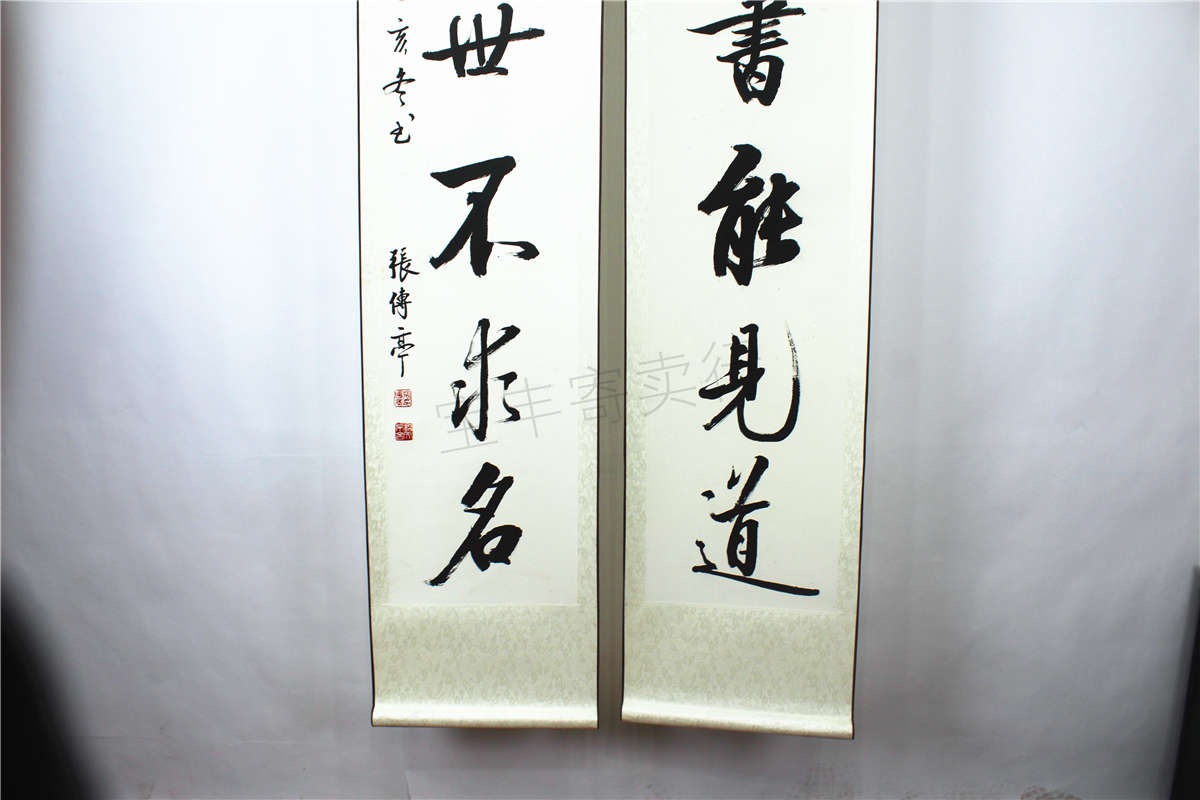 書能見道
世不求名
亥冬书
張傳亭
宝丰寄卖行